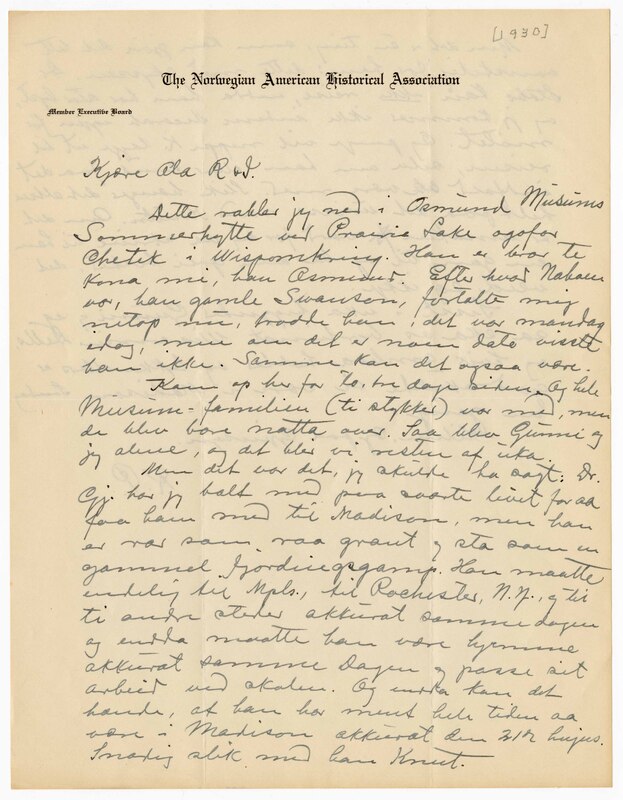 [1930]
The Norwegian American Historical Association
Member Executive Board
Kjære Ola R
Dette rabler jeg ned i Osmund Musums
Sommerhytte ved Prairie Lake ogofor
Chetek i Wisponnkring. Han er bror te
kona mi, han Osmund. Efter hvad Naboen
vor, han gamle Swanson, fortalte mig
netop nu, trodde han, det var mandag
idag, men om det er noen dato visste
han ikke. Samme kan det ogsaa være.
Kom op her for to, tre dage siden. Og hele
Musum-familien (ti stykker) var med, men
de blev bare natta over. Saa blev Gunni og
jeg alene, og det blev vi resten af uka.
Men det var det, jeg skulde ha sagt: Dr.
Gj. har jeg halt med paa svarte livet for aa
faa ham med til Madison, men han
er var som raa graut og sta som en
gammel Fjordingsgamp. Han maatte
endelig til Mpls., til Rochester, N.Y., og til
ti andre steder akkurat samme dagen
og endda maatte han være hjemme
akkurat samme Dagen og passe sit
arbeid ved skolen. Og endda kan det
hænde, at han har ment hele tiden aa
være i Madison akkurat den 21de hujus.
Snaaig slik med han Knut.